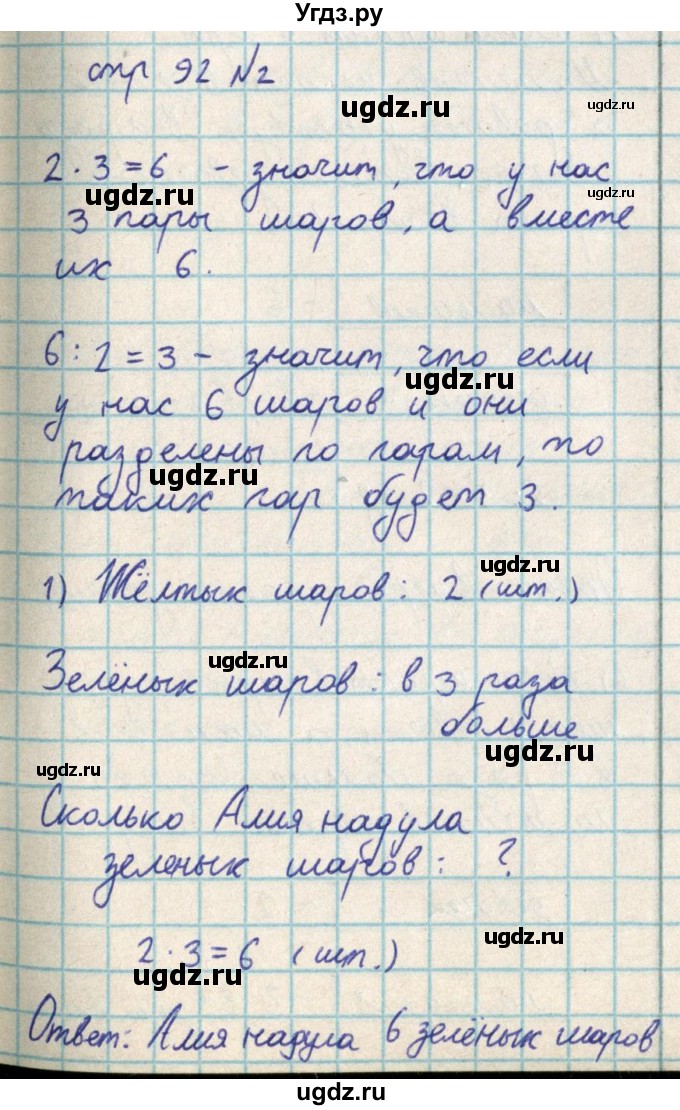 Угдз.ру
стр 92 №2
ugdz.ru
ugdz.ru
2 · 3 = 6 - значит, что у нас
ugdz.ru
ugdz.ru
3 пары шаров, а вместе
их 6.
6 : 2 = 3 - значит, что если
ugdz.ru
у нас 6 шаров и они
разделены по парам, то
ugdz.ru
таких пар будет 3.
ugdz.ru
1) Жёлтых шаров: 2 (шт.)
ugdz.ru
Зелёных шаров: в 3 раза
больше
ugdz.ru
ugdz.ru
Сколько Алия надула
зеленых шаров: ?
ugdz.ru
2 · 3 = 6 (шт.)
ugdz.ru
Ответ: Алия надула 6 зелёных шаров
ugdz.ru